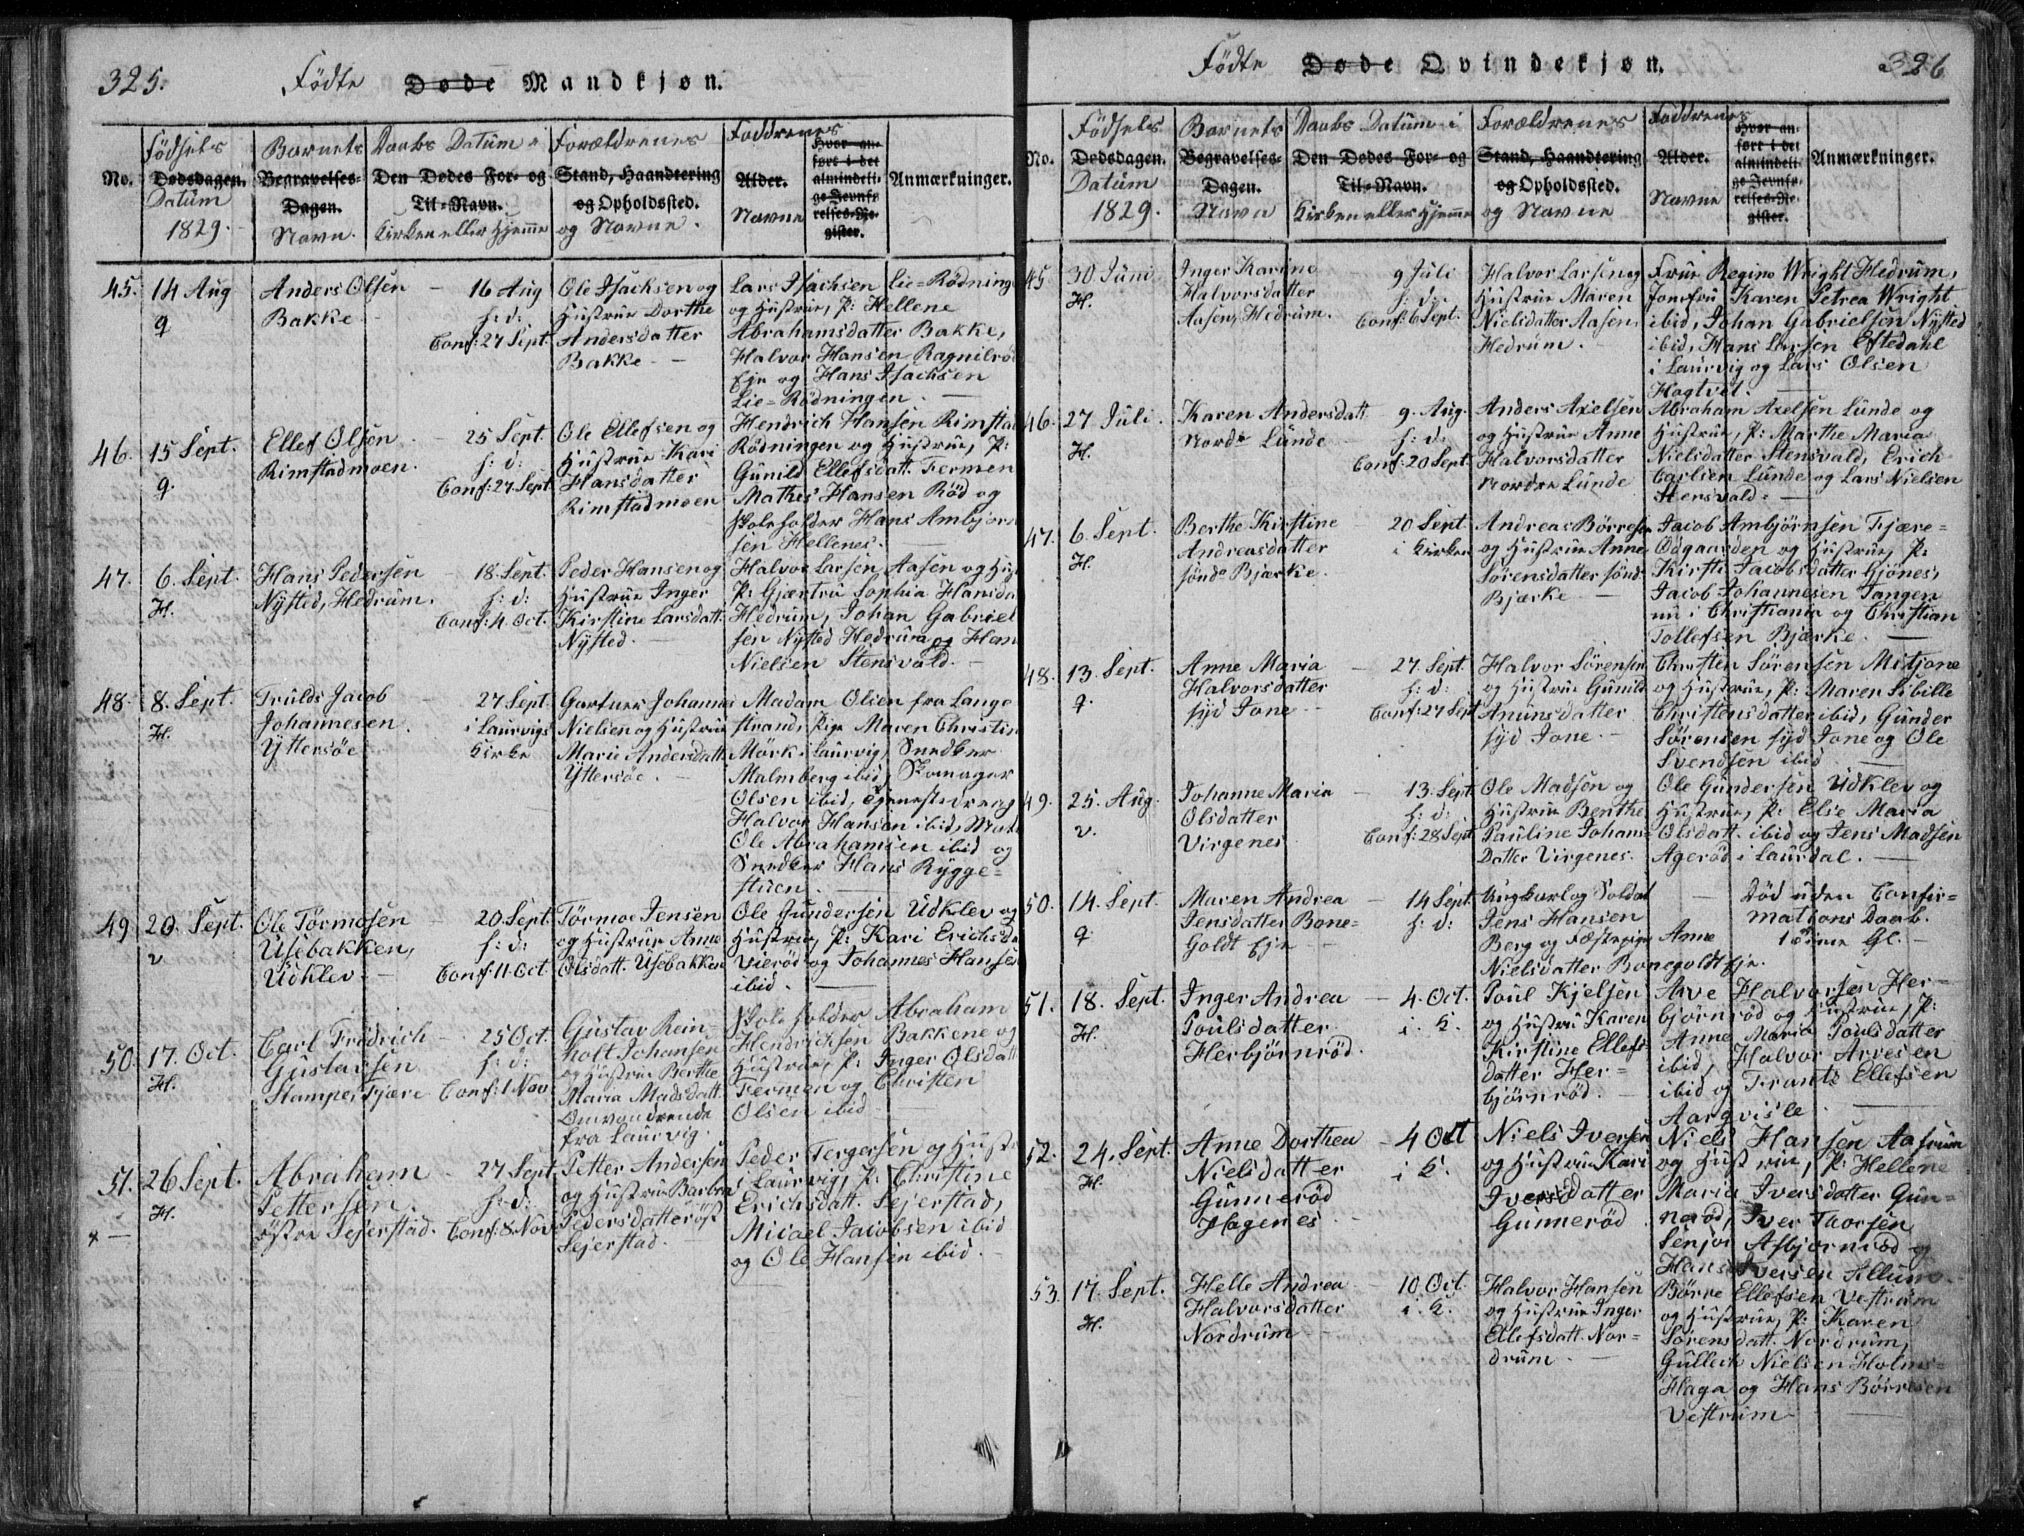 325.
Födte Døde Mandkjøn.
No.
Födsels
Dødsdagen.
Datum
1829.
Barnets
Begravelses-
Dagen.
Navn.
Daabs Datum i
Den Dødes For- og
Til-Navn.
Kirken eller Hjemme
Forældrenes
Stand, Haandtering
og Opholdssted.
og Navne.
Faddrenes
Alder.
Navne
Hvor an-
ført i det
almindeli-
ge Jevnfø-
relses-Re-
gister.
Anmærkninger.
45.
14 Aug
q
Anders Olsen
Bakke
16 Aug
h: d:
Conf: 27 Sept.
Ole Isachsen og
Hustrue Dorthe
Andersdatter
Bakke
Lars Isachsen Lie-Rödning
og Hustrue, P: Hellene
Abrahamsdatter Bakke,
Halvor Hansen Ragnilrö
Eje og Hans Isachsen
Lie-Rödningen.
46.
15 Sept.
q.
Ellef Olsen
Rimstadmoen.
25 Sept.
h: d:
Conf: 27 Sept
Ole Ellefsen og
Hustrue Kari
Hansdatter
Rimstadmoen
Hendrich Hansen Rimstad
Rödningen og Hustrue, P:
Gunild Ellefsdatt. Fermen
Mathis Hansen Röd og
Skoleholder Hans Ambjorn
sen Hellenes.
47.
6. Sept.
H.
Hans Pedersen
Nysted, Hedrum.
18. Sept.
h: d:
Conf: 4. Oct.
Peder Hansen og
Hustrue Inger
Kirstine Larsdatt.
Nysted.
Halvor Larsen Aasen og Hus
P: Gjærtru Sophia Hansda
Hedrum, Johan Gabriel
sen Nysted Hedrum og Han
Nielsen Stensvald.
48.
8. Sept.
H.
Truls Jacob
Johannesen
Yttersöe
27 Sept.
i Laurvigs
Kirke
Gartner Johannes
Nielsen og Hustrue
Marie Andersdatt.
Yttersöe.
Madam Olsen fra Lange
strand, Pige Maren Christin
Mörk i Laurvig, Snedker
Malmberg ibid, Skomager
Olsen ibid, Tjenestedreng
Halvor Hansen ibid, Mat
Ole Abrahamsen ibid og
Snedker Hans Rygge-
stuen.
49
20. Sept.
v
Ole Törmosen
Usebakken,
Udklev
20. Sept.
h: d:
Conf: 11 Oct.
Törmoe Jensen
og Hustrue Anne
Olsdatt. Usebakken
Ole Gundersen Udklev og
Hustrue, P: Kari Erichsda
Vieröd og Johannes Hansen
ibid.
50
17. Oct.
H.
Carl Fredrich
Gustavsen
Stamper, Fjære
25 Oct.
h: d:
Conf: 1 Nov
Gustav Rein-
holt Johansen
og Hustrue Berthe
Maria Madsdatt.
Omvandrende
fra Laurvig.
Skoleholder Abraham
Hendrichsen Bakkene og
Hustrue, P: Inger Olsdatt
Fermen og Christen
Olsen ibid.
51.
26 Sept.
H.
Abraham
Pettersen
östre Sejerstad.
27 Sept.
h: d:
Conf: 8. Nov
Petter Andersen
og Hustrue Barbra
Pedersdatter öst
Sejerstad.
Peder Tergersen og Hustr
i Laurvig, P: Christine
Erichsdatt. Sejerstad,
Micael Jacobsen ibid
og Ole Hansen ibid.
326
Födte Døde Qvindekjøn.
No.
Födsels
Dødsdagen.
Datum
1829.
Barnets
Begravelses-
Dagen.
Navn
Daabs Datum i
Den Dødes For- og
Til-Navn.
Kirken eller Hjemme
Forældrenes
Stand, Haandtering
og Opholdssted.
og Navne
Faddrenes
Alder.
Navne
Hvor an-
ført i det
almindeli-
ge Jevnfø-
relses-Re-
gister.
Anmærkninger.
45
30 Juni
H.
Inger Karine
Halvorsdatter
Aasen, Hedrum.
9 Juli
h: d:
Conf: 6 Sept.
Halvor Larsen og
Hustrue Maren
Nielsdatter Aasen,
Hedrum.
Frue Regine Wright Hedrum,
Jomfru Karen Petrea Wright
ibid, Johan Gabrielsen Nysted
ibid, Hans Larsen Eftedahl
i Laurvig og Lars Olsen
Hagtvet.
46.
27 Juli.
H.
Karen Andersdatt
Nordr Lunde
9. Aug.
h: d:
Conf: 20 Sept.
Anders Axelsen
og Hustrue Anne
Halvorsdatter
Nordre Lunde
Abraham Axelsen Lunde og
Hustrue, P: Marthe Maria
Nielsdatter Stensvald, Erich
Carlsen Lunde og Lars Nielsen
Stensvald.
47.
6. Sept.
H.
Berthe Kirstine
Andreasdatter
söndr Bjærke.
20 Sept.
i Kirken
Andreas Börresen
og Hustrue Anne
Sörensdatter sönd
Bjærke
Jacob Ambjörnsen Fjære-
Odgaarden og Hustrue, P:
Kirsti Jacobsdatter Gjönes,
Jacob Johannesen Tangen
nu i Christiania og Christian
Tollefsen Bjærke.
48.
13. Sept.
q.
Anne Maria
Halvorsdatter
syd Jone
27. Sept.
h: d:
Conf: 27 Sept
Halvor Sörensen
og Hustrue Gunild
Anunsdatter
syd Jone.
Christen Sörensen Mitjone
og Hustrue, P: Maren Sibille
Christensdatter ibid, Gunder
Sörensen syd Jone og Ole
Svendsen ibid
49.
25. Aug.
v.
Johanne Maria
Olsdatter
Virgenes
13. Sept.
h: d:
Conf: 28 Sept.
Ole Madsen og
Hustrue Benthe
Pauline Johans
Datter Virgenes.
Ole Gundersen Udklev og
Hustrue, P: Else Maria
Olsdatt. ibid og Jens Madsen
Ageröd i Laurdal.
50.
14. Sept.
q
Maren Andrea
Jensdatter Bone-
Goldt Eje
14 Sept.
h: d:
Ungkarl og Soldat
Jens Hansen
Berg og Fæstepige Anne
Nielsdatter Bonegoldt Eje.
Död uden Confir-
mations Daab.
1 Time Gl.
51.
18. Sept.
H.
Inger Andrea
Poulsdatter
Herbjörnröd.
4. Oct.
i. K.
Poul Kjelsen
og Hustru Karen
Kirstine Ellefs
datter Her-
björnröd.
Arve Halvorsen Her-
bjornröd og Hustrue, P:
Anne Maria Poulsdatter
ibid, Halvor Arvesen
ibid og Frants Ellefsen
Aarqvisle.
52.
24. Sept.
H.
Anne Dorthea
Nielsdatter
Gunneröd
Hagenes
4 Oct
i K.
Niels Iversen
og Hustrue Kari
Iversdatter
Gunneröd
Niels Hansen Aasrum
og Hustrue, P: Hellene
Maria Iversdatter Gun-
neröd, Iver Thorsen
Senjor Asbjornröd og
Hans Iversen Allum.
53.
17. Sept.
H.
Helle Andrea
Halvorsdatter
Nordrum
10 Oct.
i. K.
Halvor Hansen
og Hustrue Inger
Ellefsdatt. Nor-
drum.
Börre Ellefsen Vestrum
og Hustrue, P: Karen
Sörensdatt. Nordrum,
Gulleck Nielsen Holms-
Haga og Hans Börresen
Vestrum